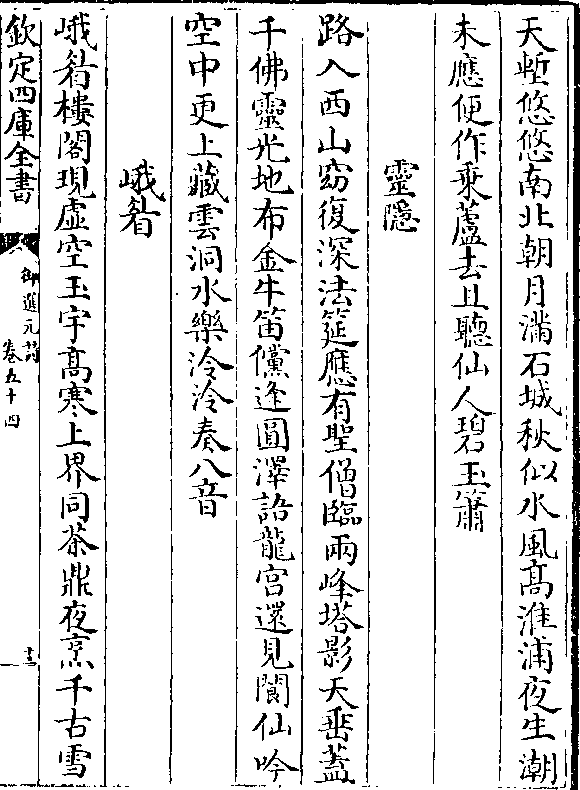 天塹悠悠南北朝月滿石城秋似水風髙淮浦夜生潮
未應便作乗蘆去且聽仙人碧玉簫
靈隱
路入西山窈復深法筵應有聖僧臨兩峰塔影天垂葢
千佛靈光地布金牛笛儻逢圓澤語龍宫還見閬仙吟
空中更上藏雲洞水樂泠泠奏八音
峨眉
峨眉樓閣現虛空玉宇髙寒上界同茶鼎夜烹千古雪
欽定四庫全書
御選元詩
卷五十四